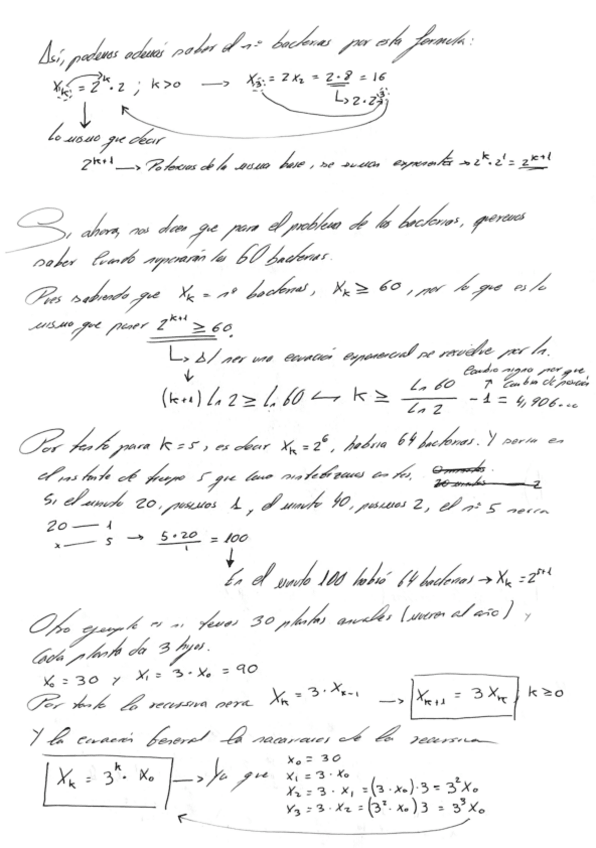 Así, podemos además saber el nº bacterias por esta fórmula:
X_k = 2^k · 2 ; k>0 → X_3 = 2X_2 = 2·8 = 16
↳ 2·2^3
Lo mismo que decir
2^{k+1} → Potencias de la misma base, se suman exponentes → 2^k · 2^1 = 2^{k+1}
Si ahora, nos dicen que para el problema de las bacterias, queremos
saber cuando superarán las 60 bacterias.
Pues sabiendo que X_k = nº bacterias, X_k ≥ 60, por lo que es lo
mismo que poner 2^{k+1} ≥ 60.
↳ Al ser una ecuación exponencial se resuelve por ln.
Cambio signo por que
↑ cambia de posición
(k+1) Ln 2 ≥ Ln 60 ↪ k ≥ Ln 60 / Ln 2 - 1 = 4,906...
Por tanto para k=5, es decir X_k = 2^6, habría 64 bacterias. Y sería en
el instante de tiempo 5 que como antes.
Si el minuto 20, pusimos 1, y el minuto 40, pusimos 2, el nº 5 será
20 — 1
x — 5 → 5·20 / 1 = 100
En el minuto 100 habrá 64 bacterias → X_k = 2^{5+1}
Otro ejemplo es si tenemos 30 plantas anuales (mueren al año) y
cada planta da 3 hijos.
X_0 = 30 y X_1 = 3·X_0 = 90
Por tanto la recursiva será X_k = 3·X_{k-1} → X_{k+1} = 3X_k, k≥0
Y la ecuación general la sacaremos de la recursiva
X_k = 3^k · X_0 → Ya que
X_0 = 30
X_1 = 3·X_0
X_2 = 3·X_1 = (3·X_0)·3 = 3^2 X_0
X_3 = 3·X_2 = (3^2·X_0)3 = 3^3 X_0